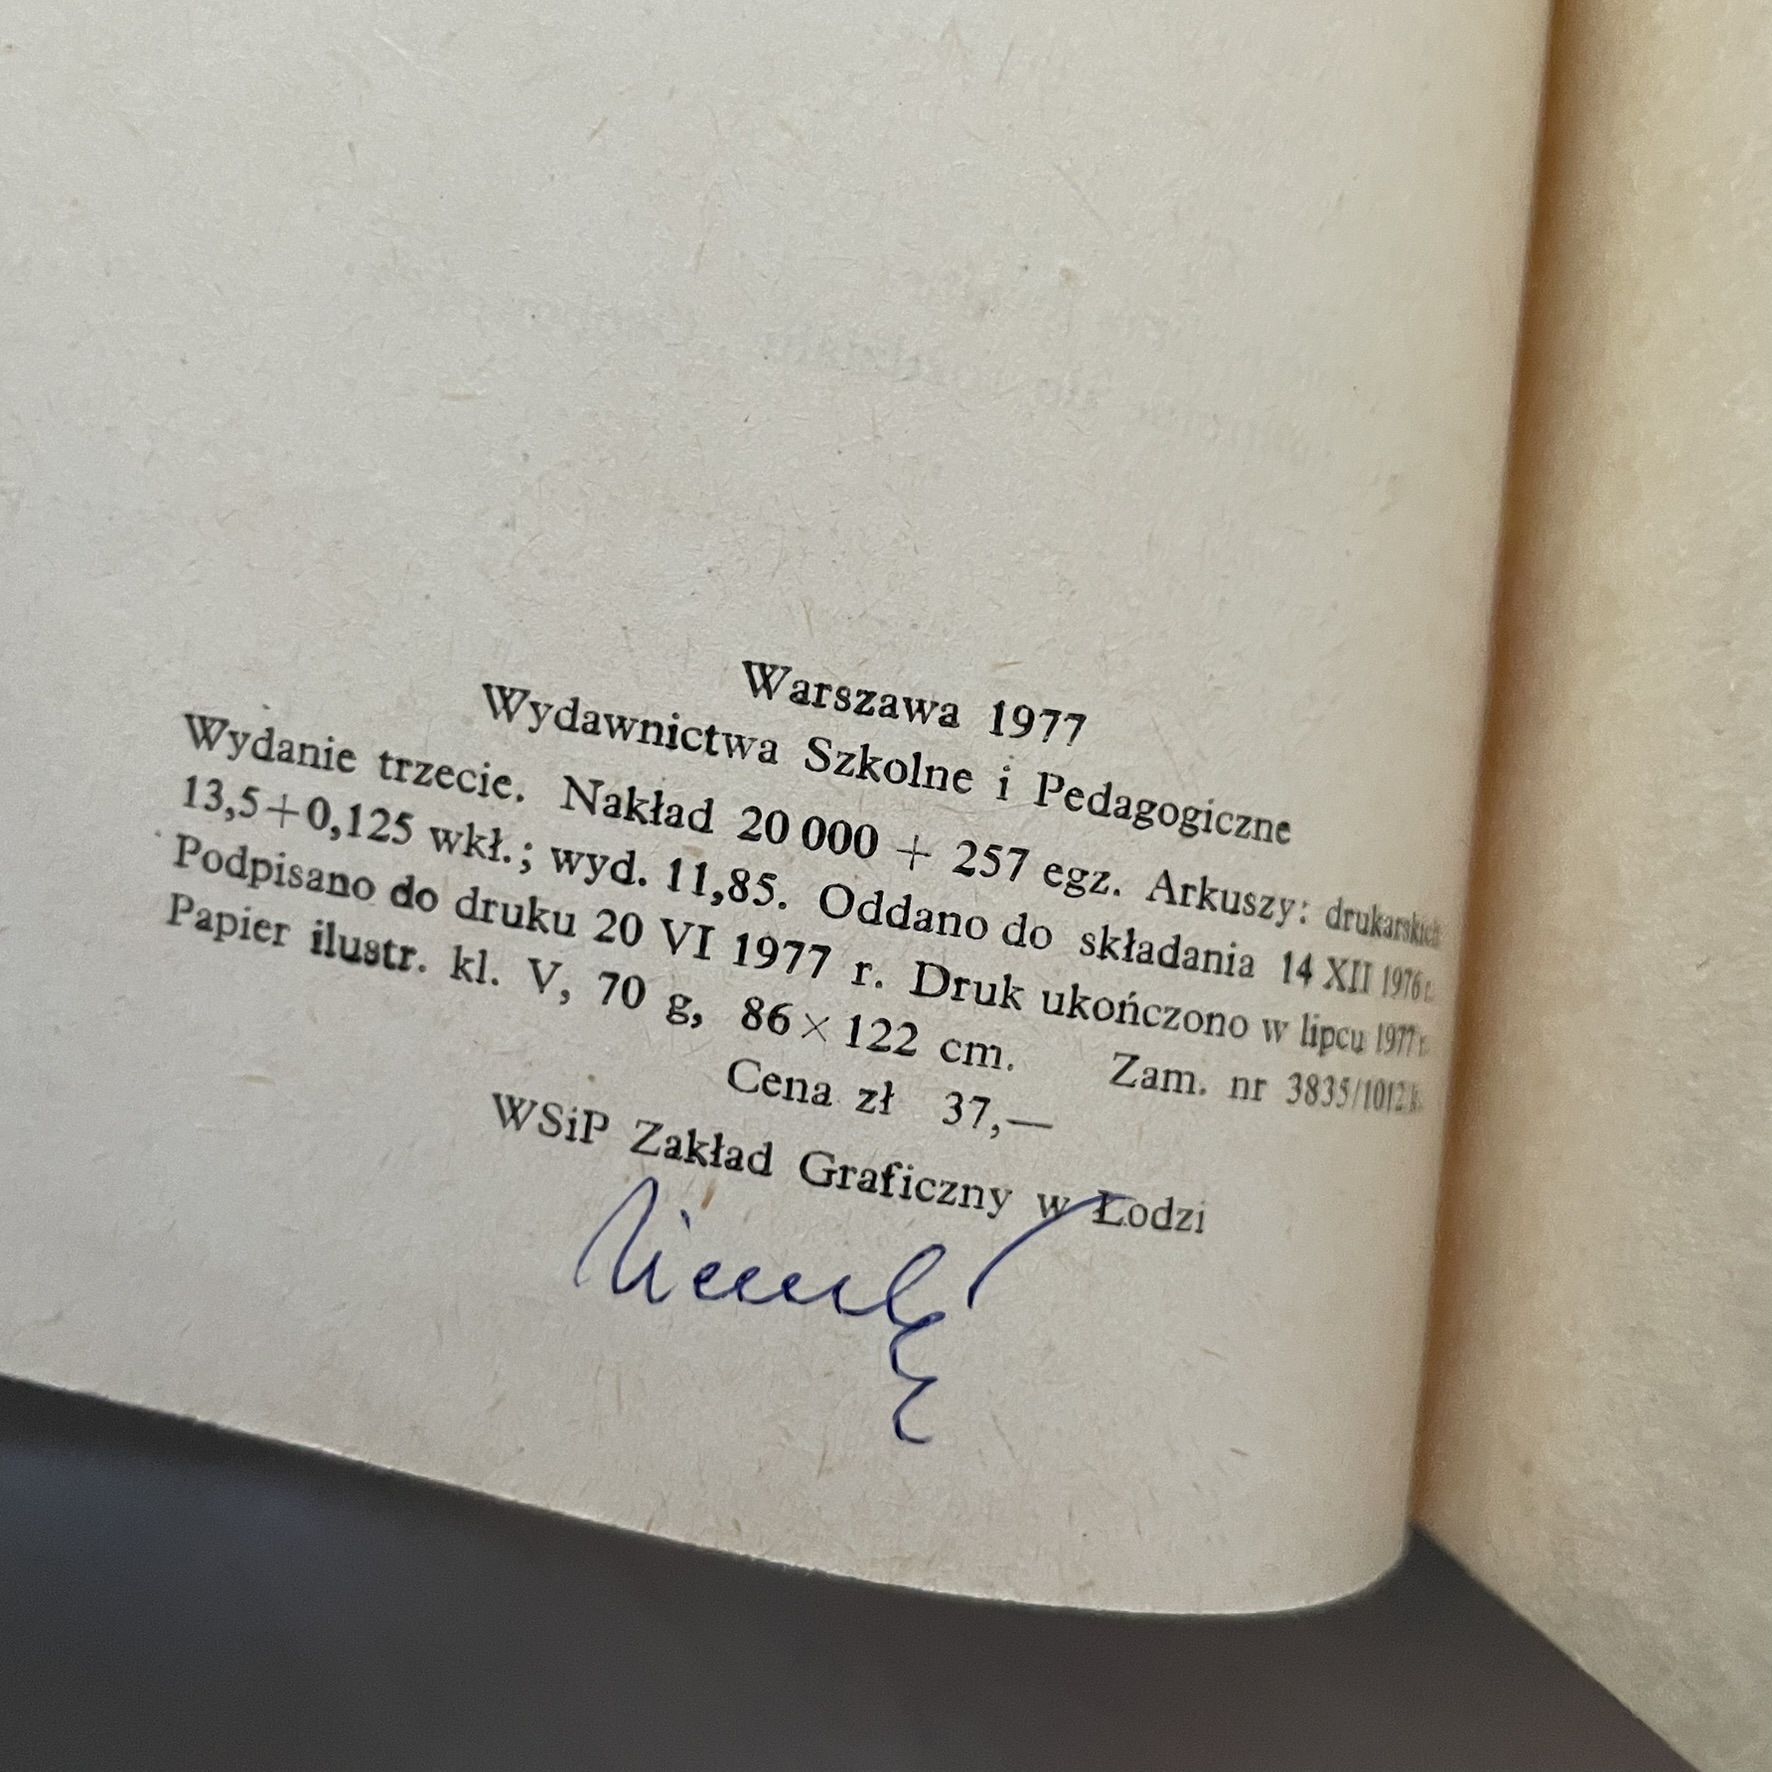 Warszawa 1977
Wydawnictwa Szkolne i Pedagogiczne
Wydanie trzecie. Nakład 20 000 + 257 egz. Arkuszy: drukarskich
13,5+0,125 wkł.; wyd. 11,85. Oddano do składania 14 XII 1976 r.
Podpisano do druku 20 VI 1977 r. Druk ukończono w lipcu 1977 r.
Papier ilustr. kl. V, 70 g, 86×122 cm. Zam. nr 3835/1012
Cena zł 37,—
WSiP Zakład Graficzny w Łodzi